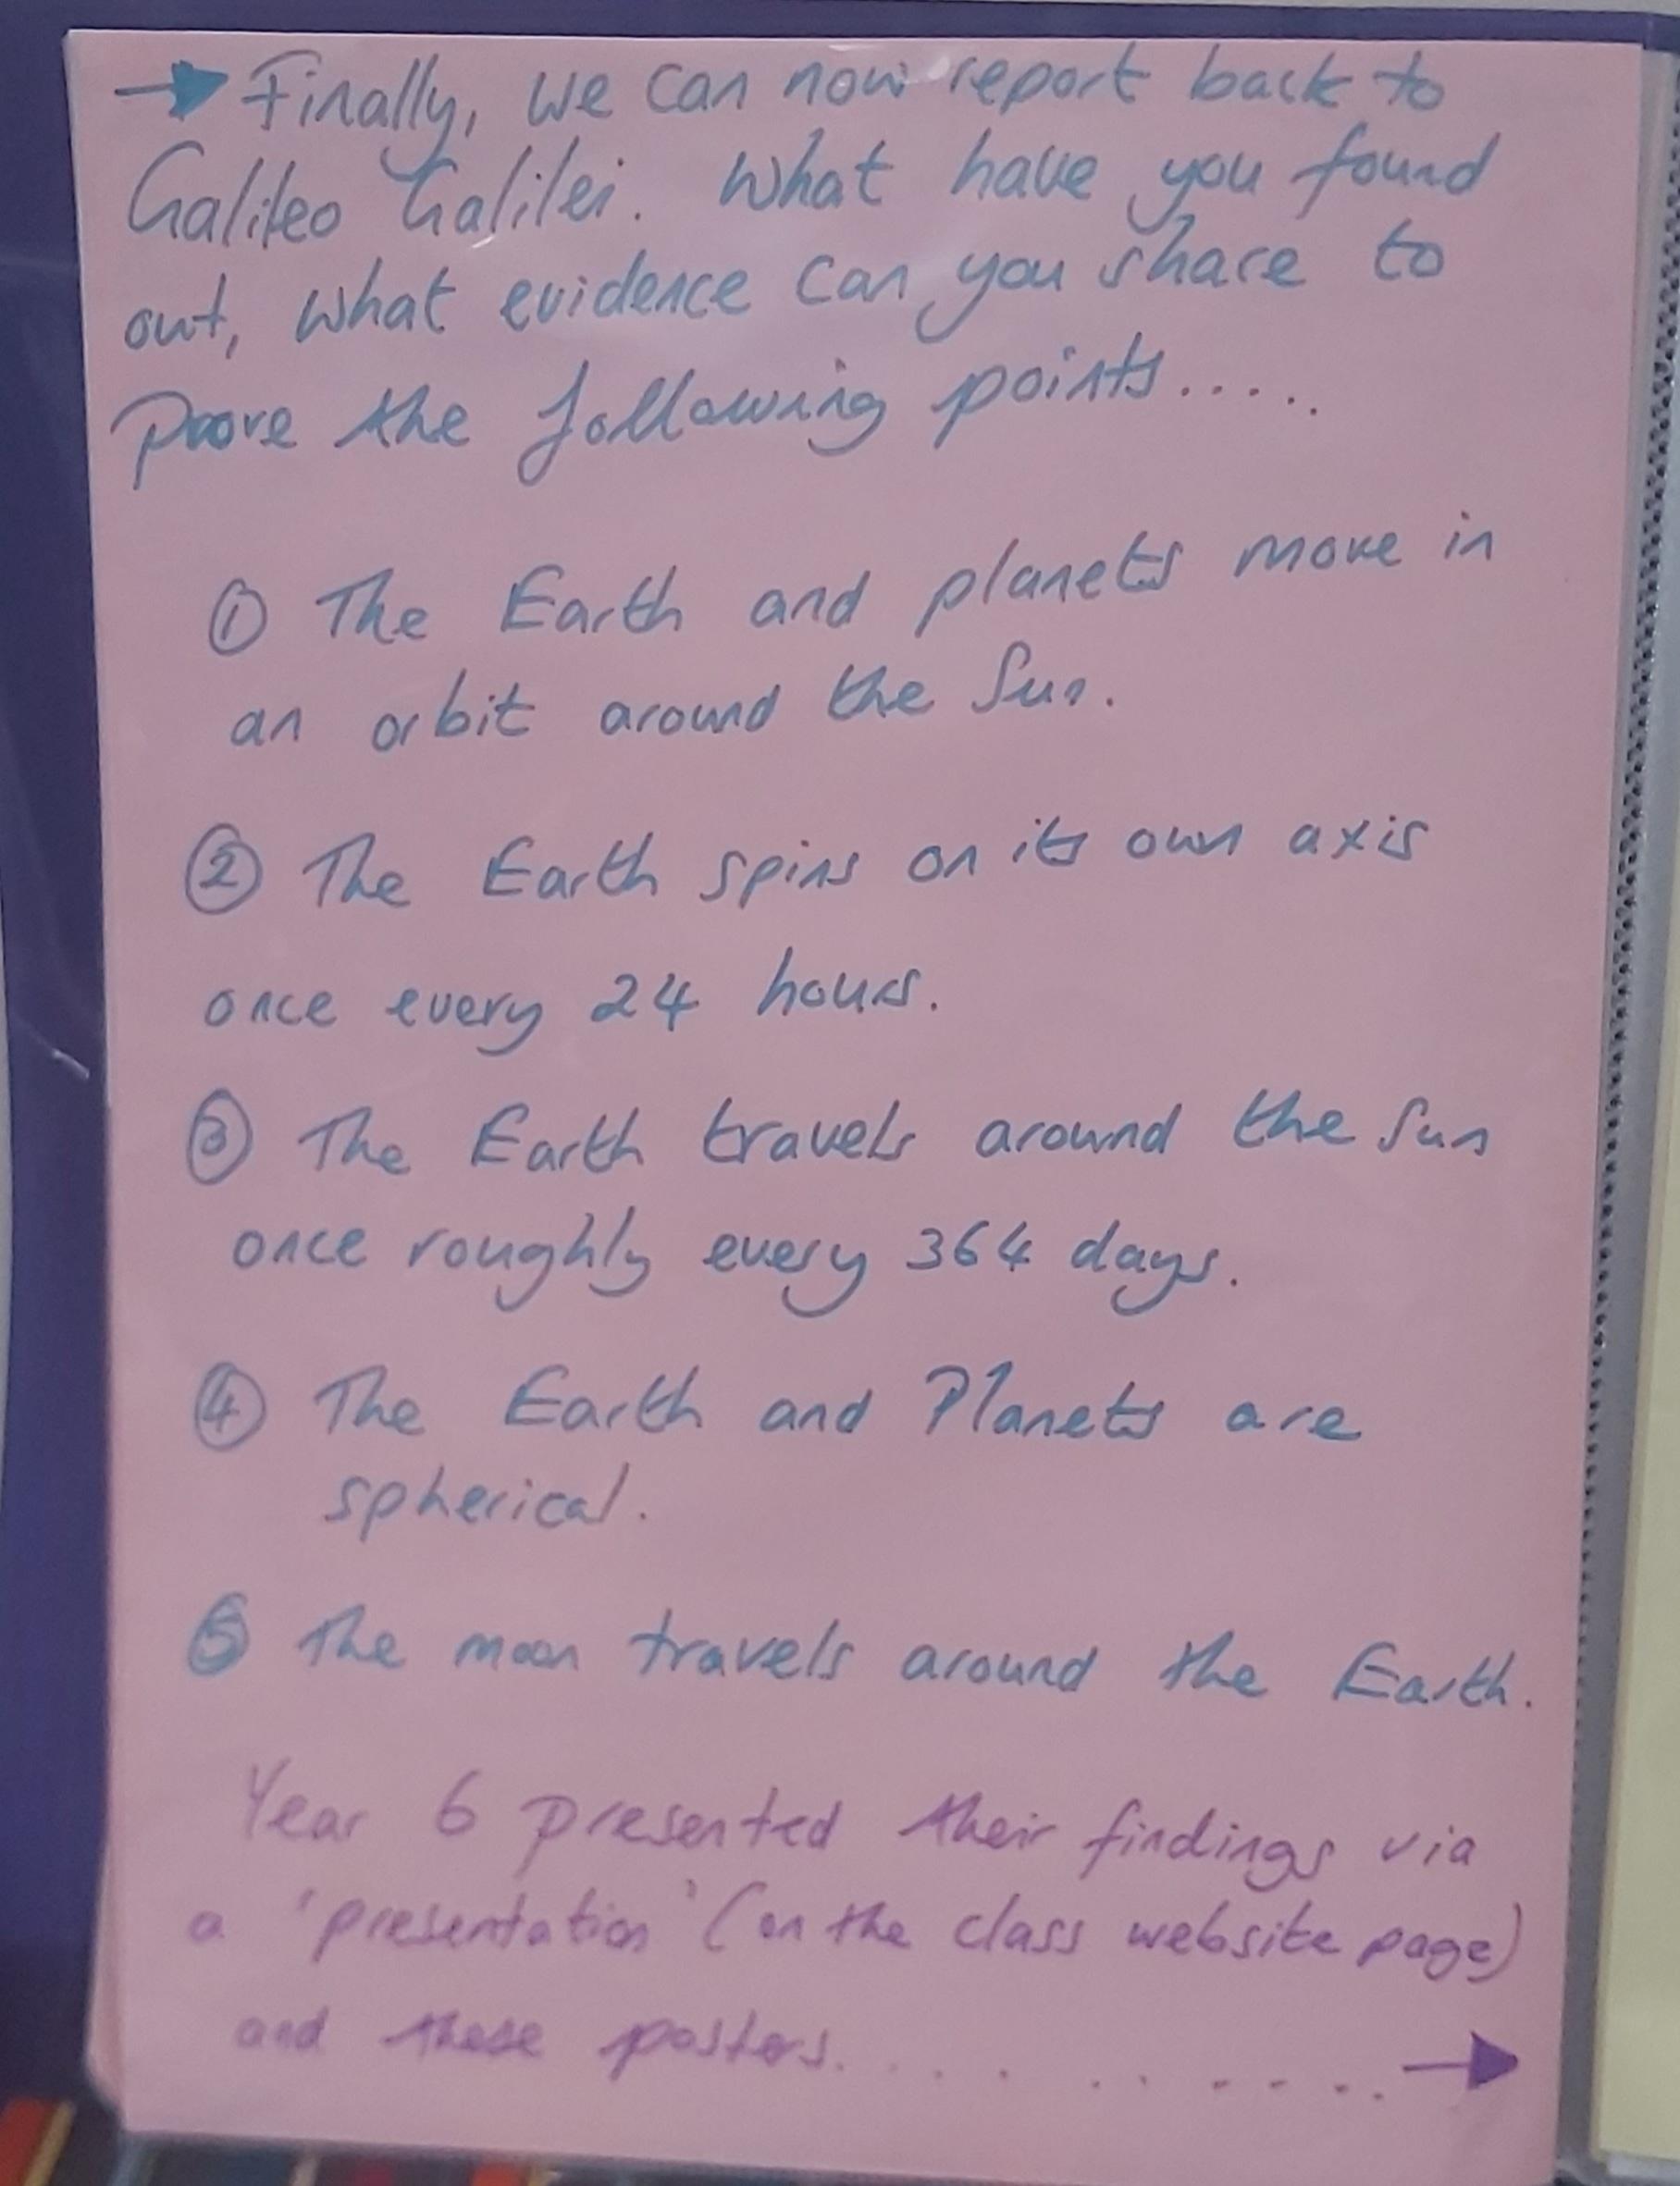 → Finally, we can now report back to
Galileo Galilei. What have you found
out, what evidence can you share to
prove the following points.....
① The Earth and planets move in
an orbit around the Sun.
② The Earth spins on its own axis
once every 24 hours.
③ The Earth travels around the Sun
once roughly every 364 days.
④ The Earth and Planets are
spherical.
⑤ The moon travels around the Earth.
Year 6 presented their findings via
a 'presentation' (on the class website page)
and these posters. . . . . . . . . . →